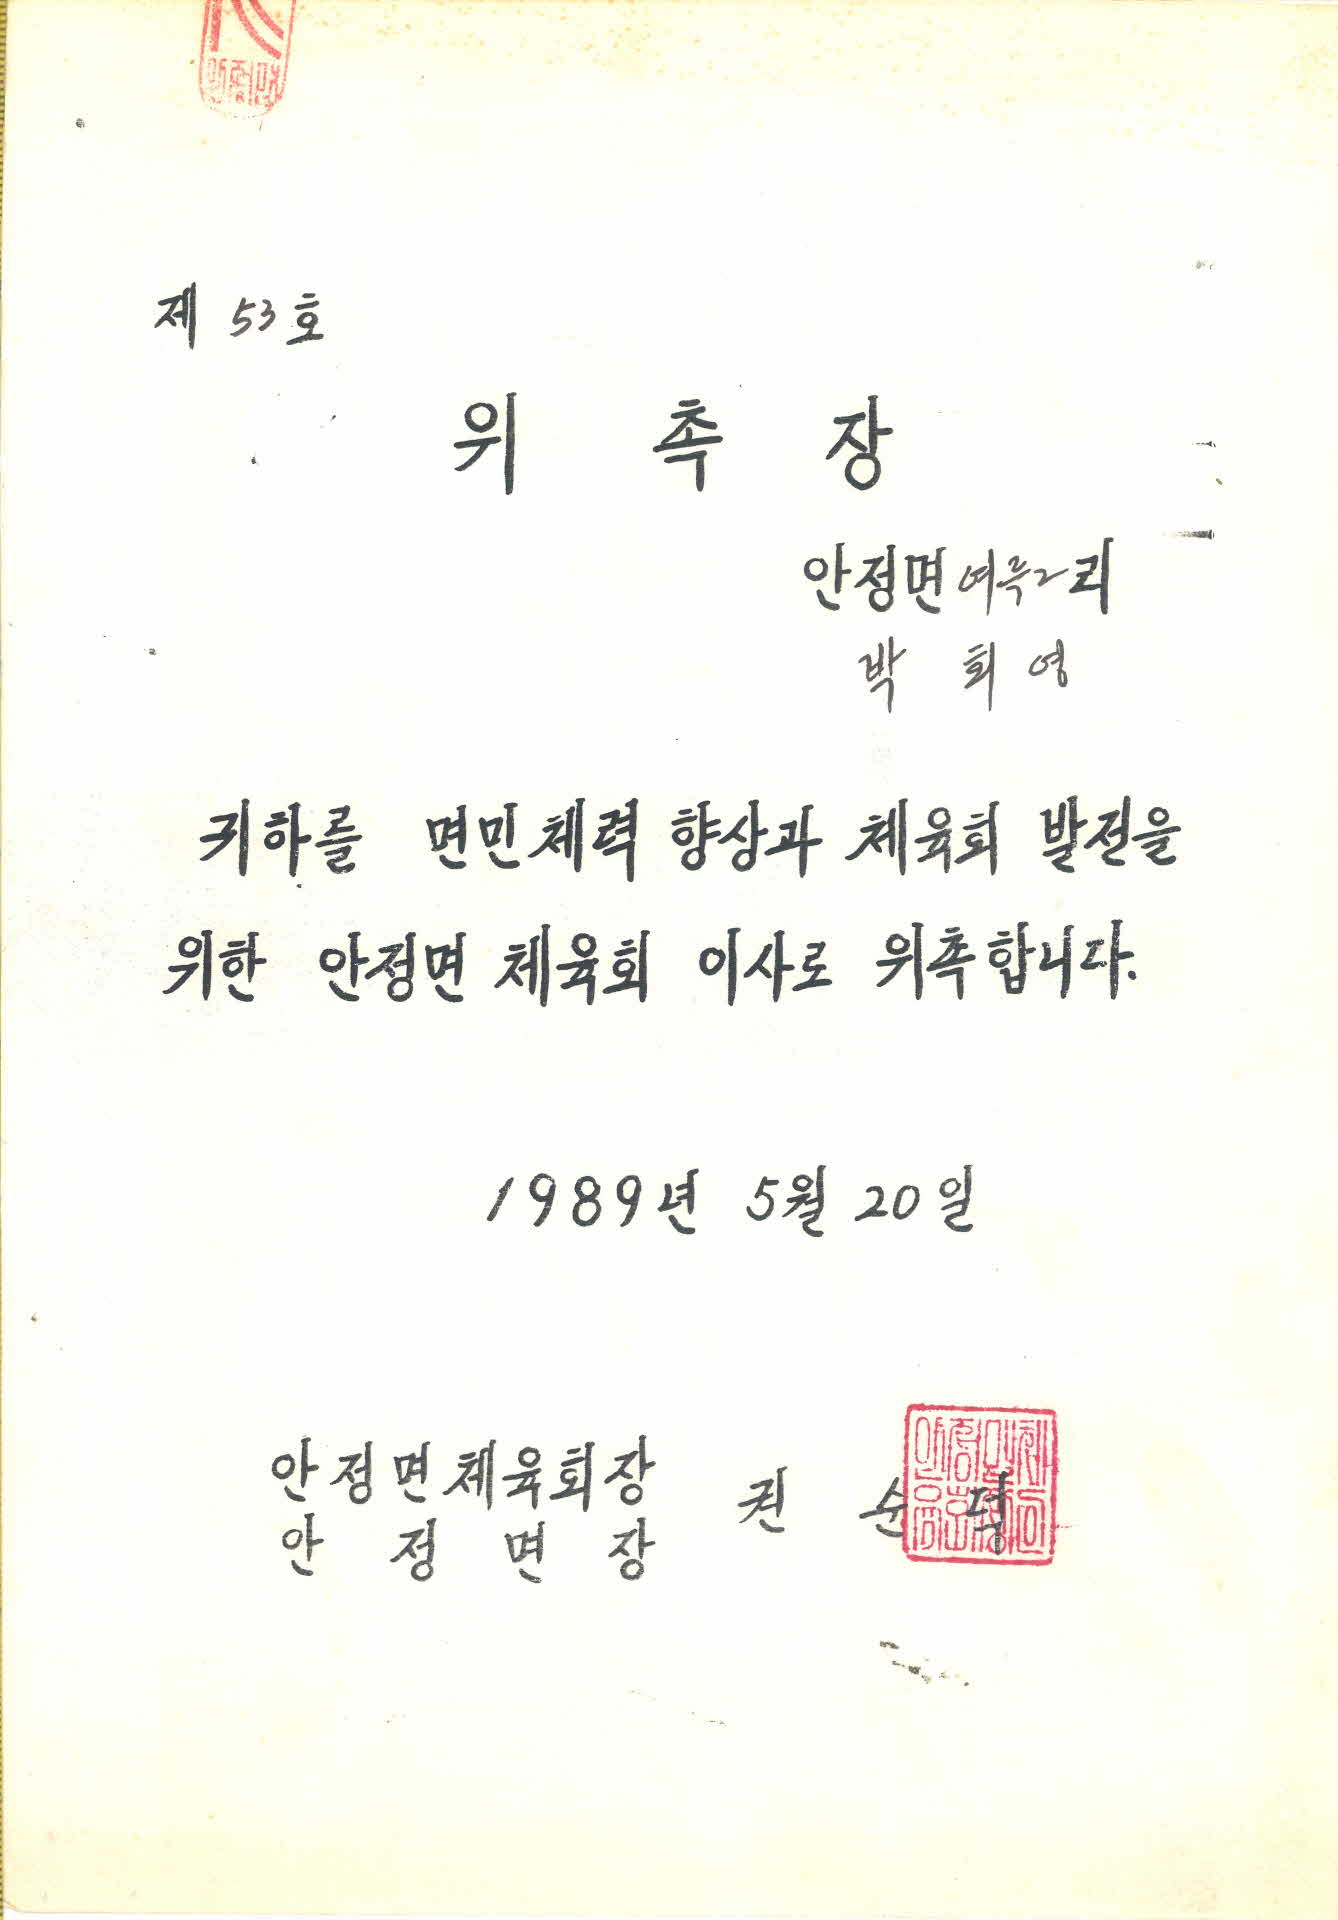 제 53 호
위 촉 장
안정면 여륵2리
박 희 영
귀하를 면민체력 향상과 체육회 발전을
위한 안정면 체육회 이사로 위촉합니다.
1989년 5월 20일
안정면체육회장
안 정 면 장
권 순 덕